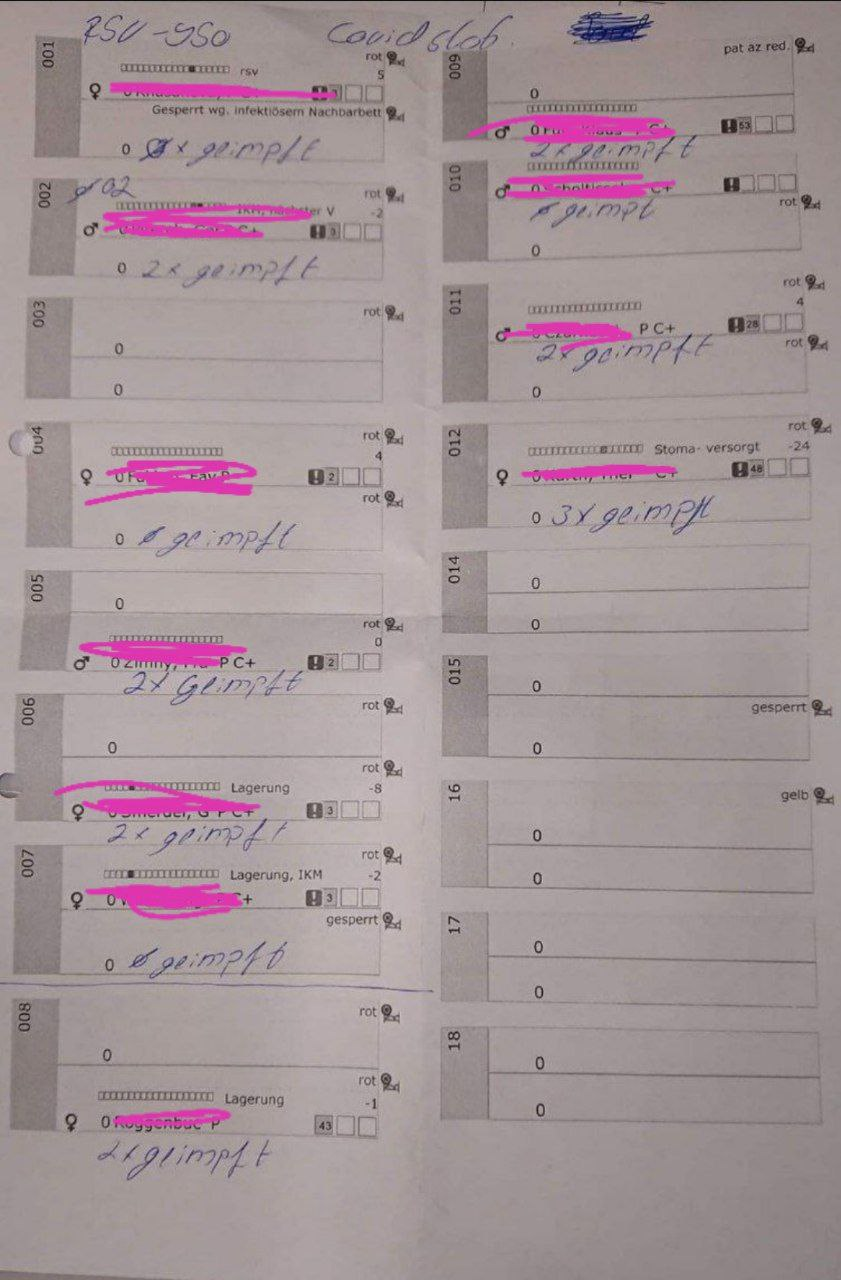 RSV-950 Covid stat.
001
rot
rsv 5
3
Gesperrt wg. infektiösem Nachbarbett
0 ø x geimpft
002
rot
-2
C+ 3
0 2x geimpft
003
rot
0
0
004
rot
4
0 2
rot
0 ø geimpft
005
0
rot
0
0 P C+ 2
2x Geimpft
006
rot
0
rot
Lagerung -8
0 P C+ 3
2x geimpft
007
rot
Lagerung, IKM -2
0 C+ 3
gesperrt
0 ø geimpft
008
rot
0
rot
Lagerung -1
0 P 43
2x geimpft
009
pat az red.
0
0 C+ 53
2x geimpft
010
0 C+
rot
ø geimpft
0
011
rot
4
0 P C+ 28
rot
2x geimpft
0
012
rot
Stoma- versorgt -24
0 C+ 48
0 3x geimpft
014
0
0
015
0
gesperrt
0
16
gelb
0
0
17
0
0
18
0
0